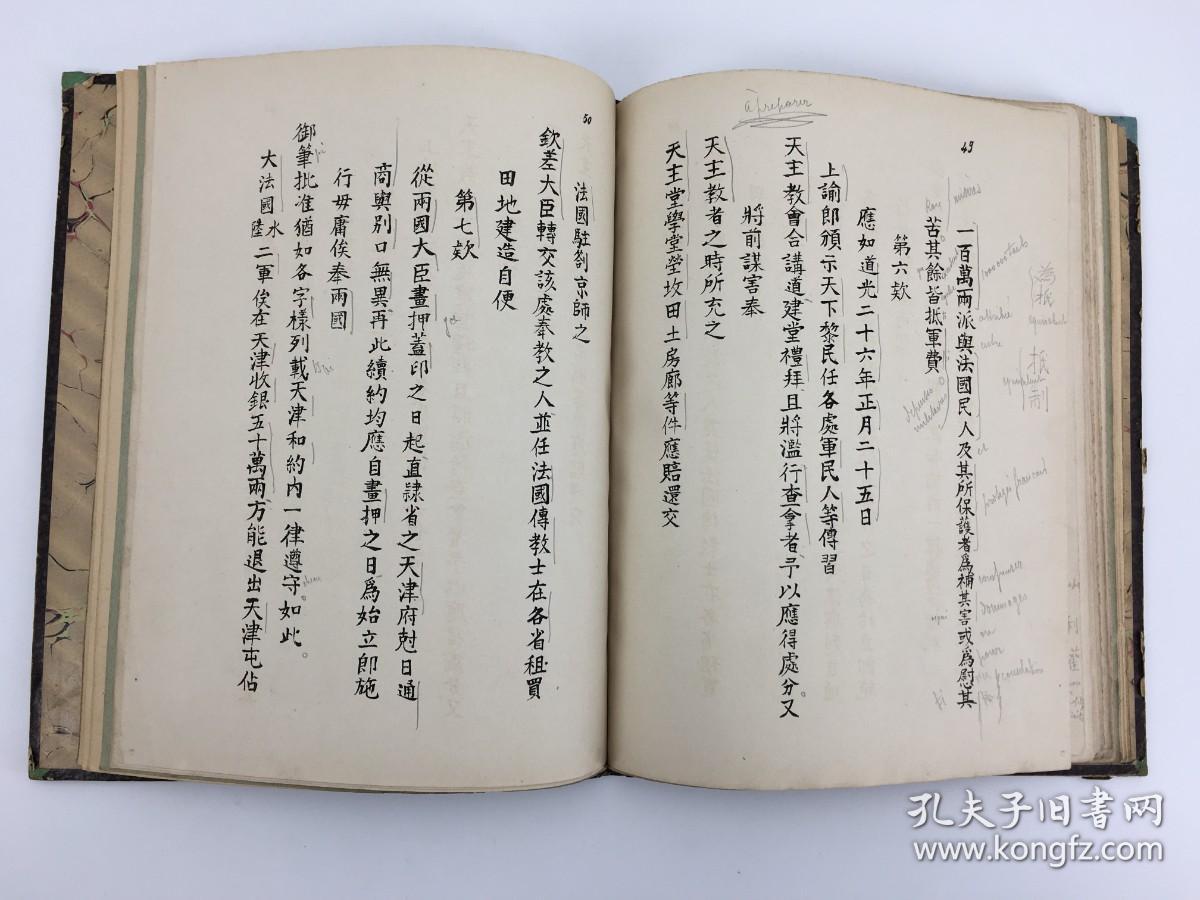 49
一百萬兩派與法國民人及其所保護者爲補其害或爲慰其
苦其餘皆抵軍費
第六欵
應如道光二十六年正月二十五日
上諭郎頒示天下黎民任各處軍民人等傳習
天主教會合講道建堂禮拜且將濫行查拿者予以應得處分又
將前謀害奉
天主教者之時所充之
天主堂學堂塋坟田土房廊等件應賠還交
à préparer
抵制
équivalent
protégé français
dommages
ou
pour
50
法國駐劄京師之
欽差大臣轉交該處奉教之人並任法國傳教士在各省租買
田地建造自便
第七欵
從兩國大臣畫押蓋印之日起直隷省之天津府尅日通
商與別口無異再此續約均應自畫押之日爲始立郎施
行毋庸俟奉兩國
御筆批准猶如各字樣列載天津和約內一律遵守。如此。
大法國水陸二軍俟在天津收銀五十萬兩方能退出天津屯佔
孔夫子旧书网
www.kongfz.com